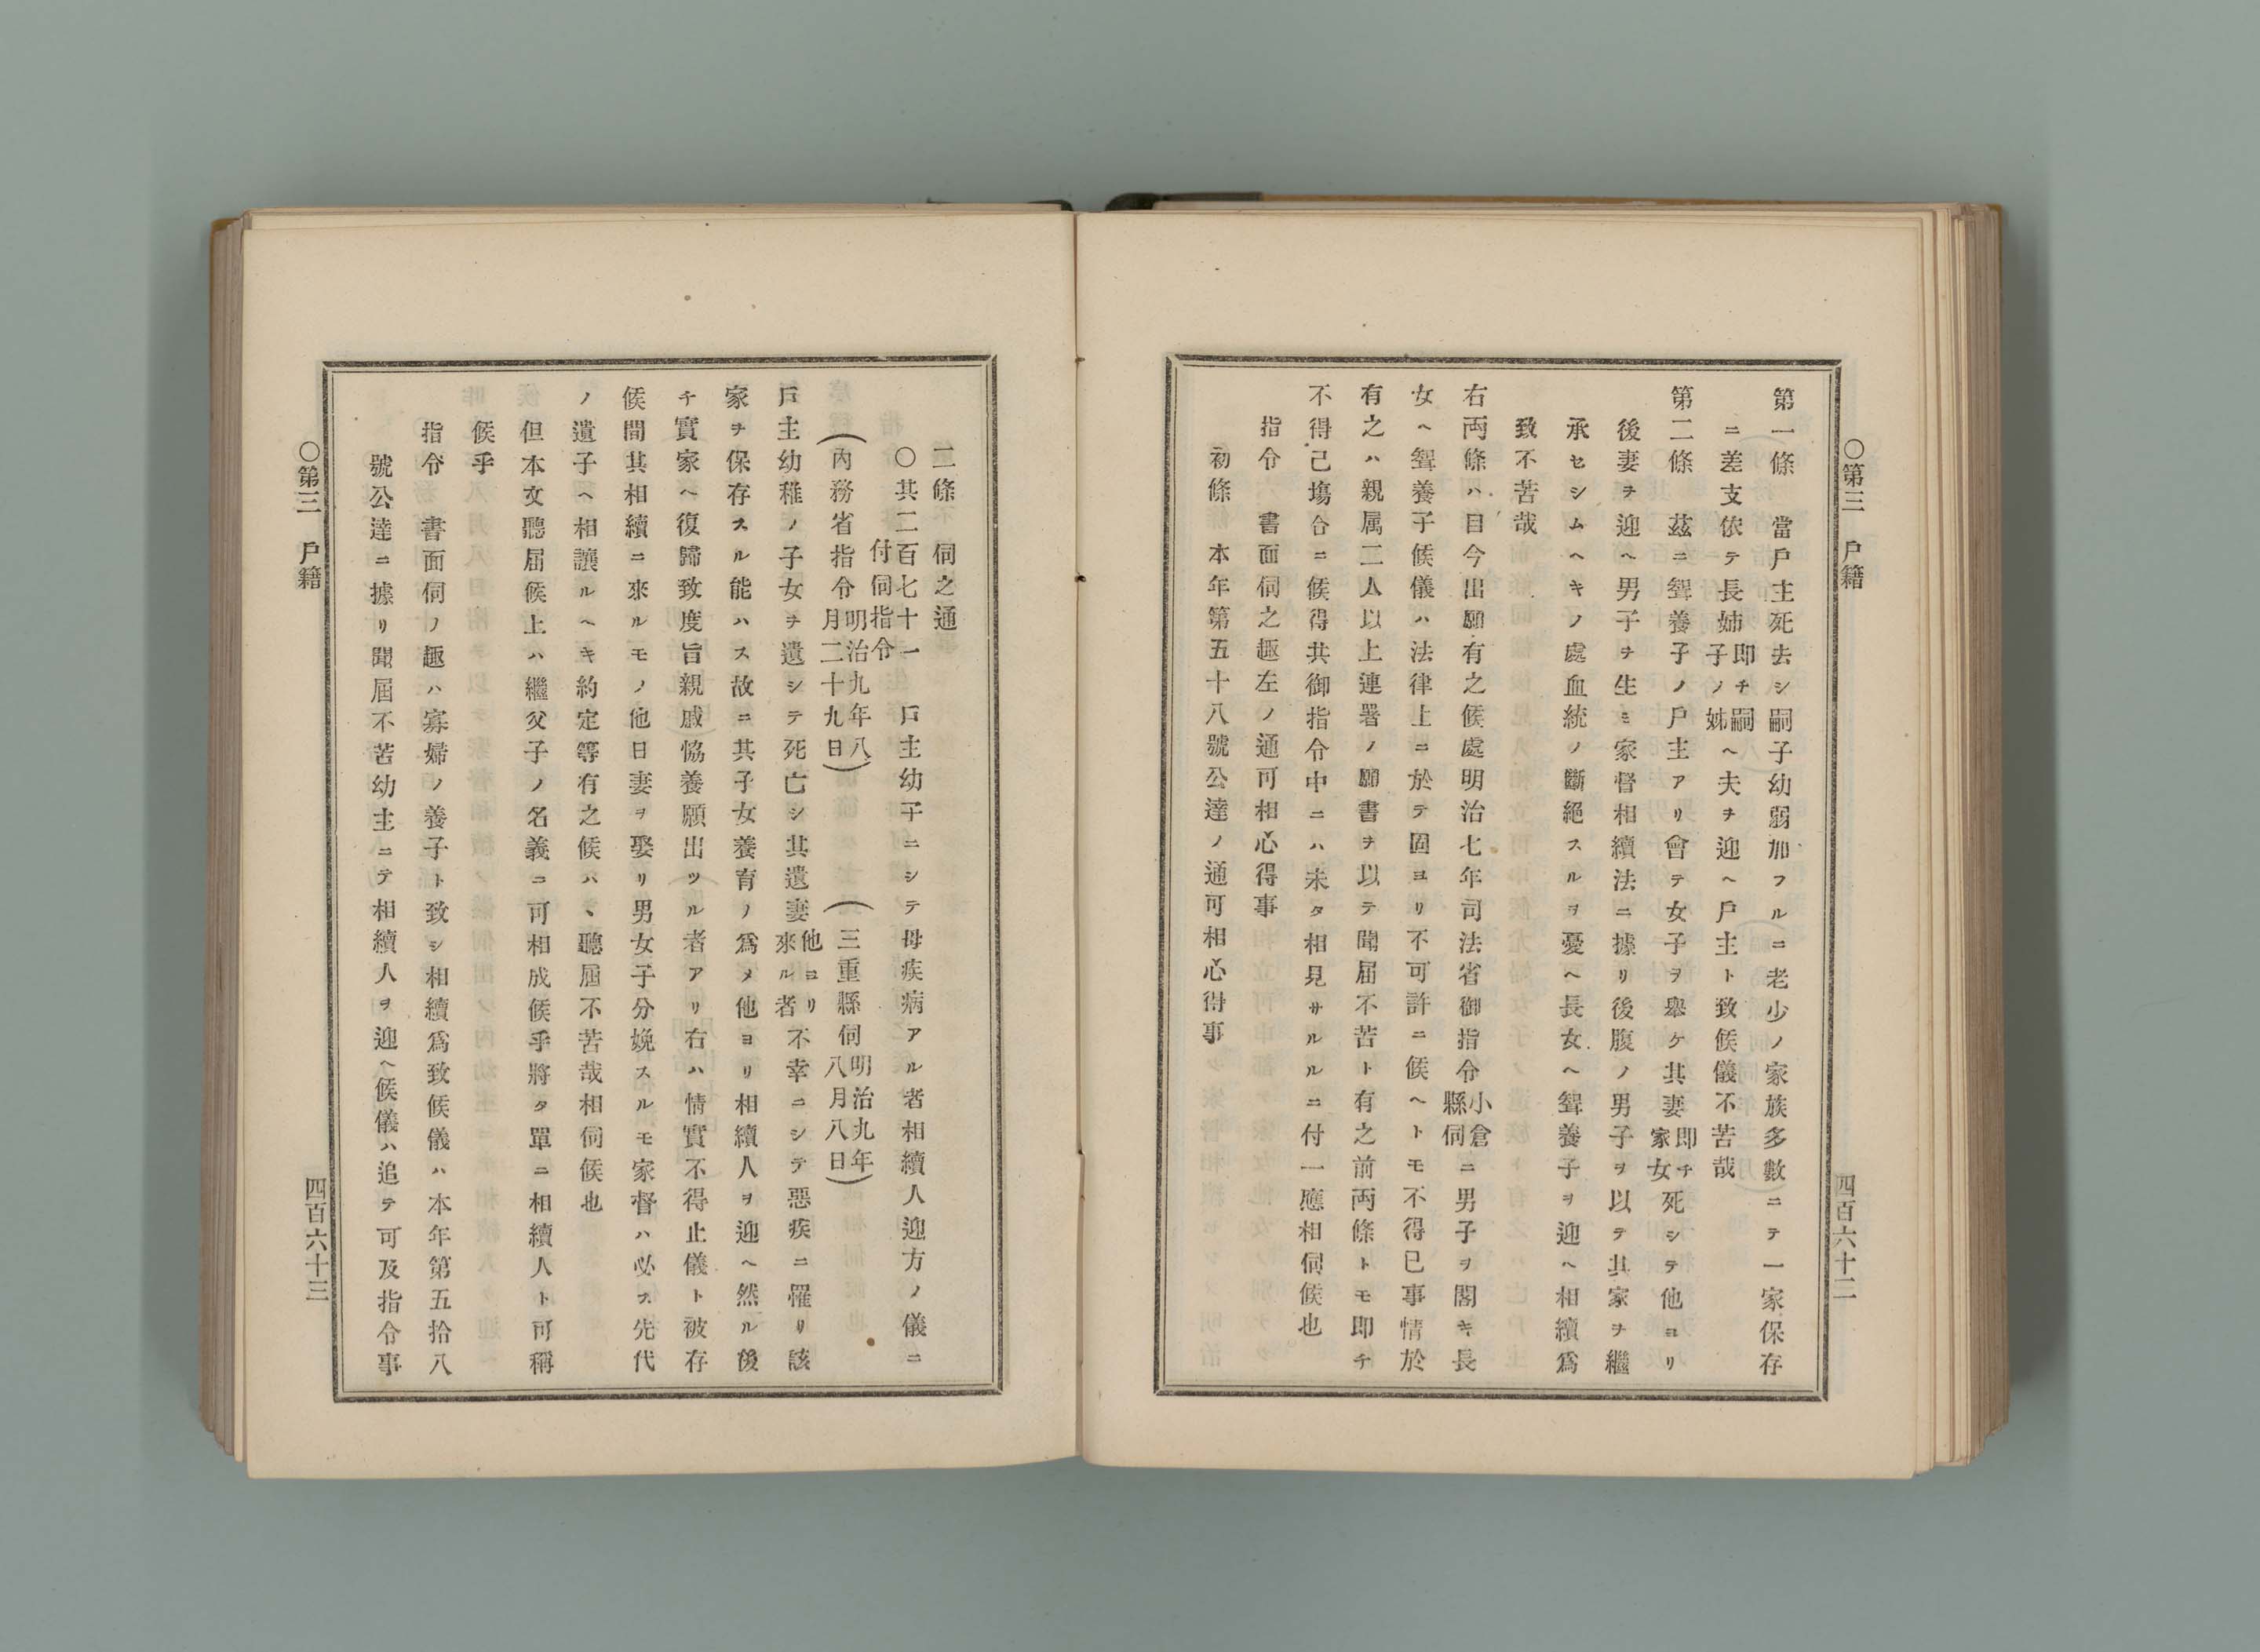 〇第三　戸籍
四百六十二
第一條　當戸主死去シ嗣子幼弱加フルニ老少ノ家族多數ニテ一家保存
ニ差支依テ長姉即チ嗣子ノ姉ヘ夫ヲ迎ヘ戸主ト致候儀不苦哉
第二條　茲ニ聟養子ノ戸主アリ會テ女子ヲ舉ケ其妻即チ家女死シテ他ヨリ
後妻ヲ迎ヘ男子ヲ生ミ家督相續法ニ據リ後腹ノ男子ヲ以テ其家ヲ繼
承セシムヘキノ處血統ノ斷絕スルヲ憂ヘ長女ヘ聟養子ヲ迎ヘ相續爲
致不苦哉
右両條ハ目今出願有之候處明治七年司法省御指令小倉縣伺ニ男子ヲ閣キ長
女ヘ聟養子候儀ハ法律上ニ於テ固ヨリ不可許ニ候ヘトモ不得已事情於
有之ハ親属二人以上連署ノ願書ヲ以テ聞届不苦ト有之前両條トモ即チ
不得己塲合ニ候得共御指令中ニハ未タ相見サルルニ付一應相伺候也
指令　書面伺之趣左ノ通可相心得事
初條　本年第五十八號公達ノ通可相心得事
二條　伺之通
〇其二百七十一　戸主幼子ニシテ母疾病アル者相續人迎方ノ儀ニ
付伺指令
（內務省指令明治九年八月二十九日）　（三重縣伺明治九年八月八日）
戸主幼稚ノ子女ヲ遺シテ死亡シ其遺妻他ヨリ來ル者不幸ニシテ惡疾ニ罹リ該
家ヲ保存スル能ハス故ニ其子女養育ノ爲メ他ヨリ相續人ヲ迎ヘ然ル後
チ實家ヘ復歸致度旨親戚恊養願出ツル者アリ右ハ情實不得止儀ト被存
候間其相續ニ來ルモノ他日妻ヲ娶リ男女子分娩スルモ家督ハ必ス先代
ノ遺子ヘ相讓ルヘキ約定等有之候ハヽ聽屆不苦哉相伺候也
但本文聽屆候上ハ繼父子ノ名義ニ可相成候乎將タ單ニ相續人ト可稱
候乎
指令　書面伺ノ趣ハ寡婦ノ養子ト致シ相續爲致候儀ハ本年第五拾八
號公達ニ據リ聞屆不苦幼主ニテ相續人ヲ迎ヘ候儀ハ追テ可及指令事
〇第三　戸籍
四百六十三